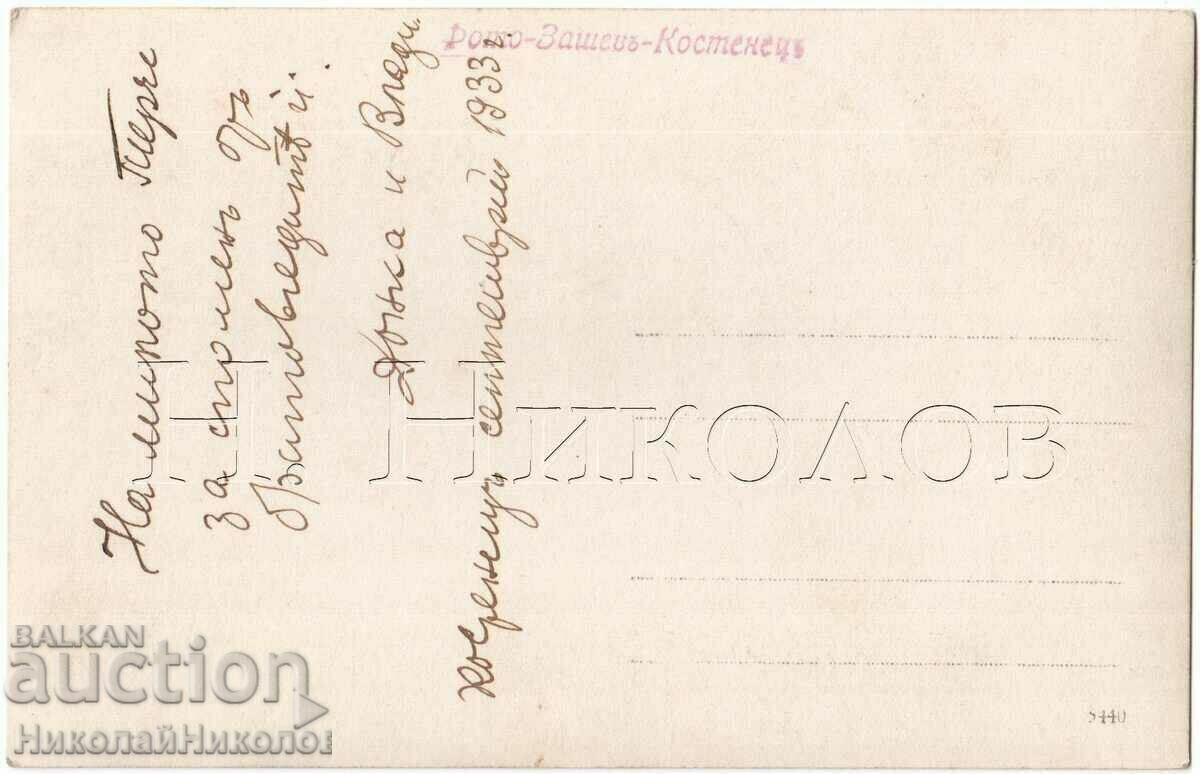 Фото-Зашевъ-Костенецъ
На милото Перче
за споменъ отъ
братовчедитѣ ѝ.
Донка и Влади
септемврий 1933 г.
Н. Николов
5440
BALKAN
auction
НиколайНиколов